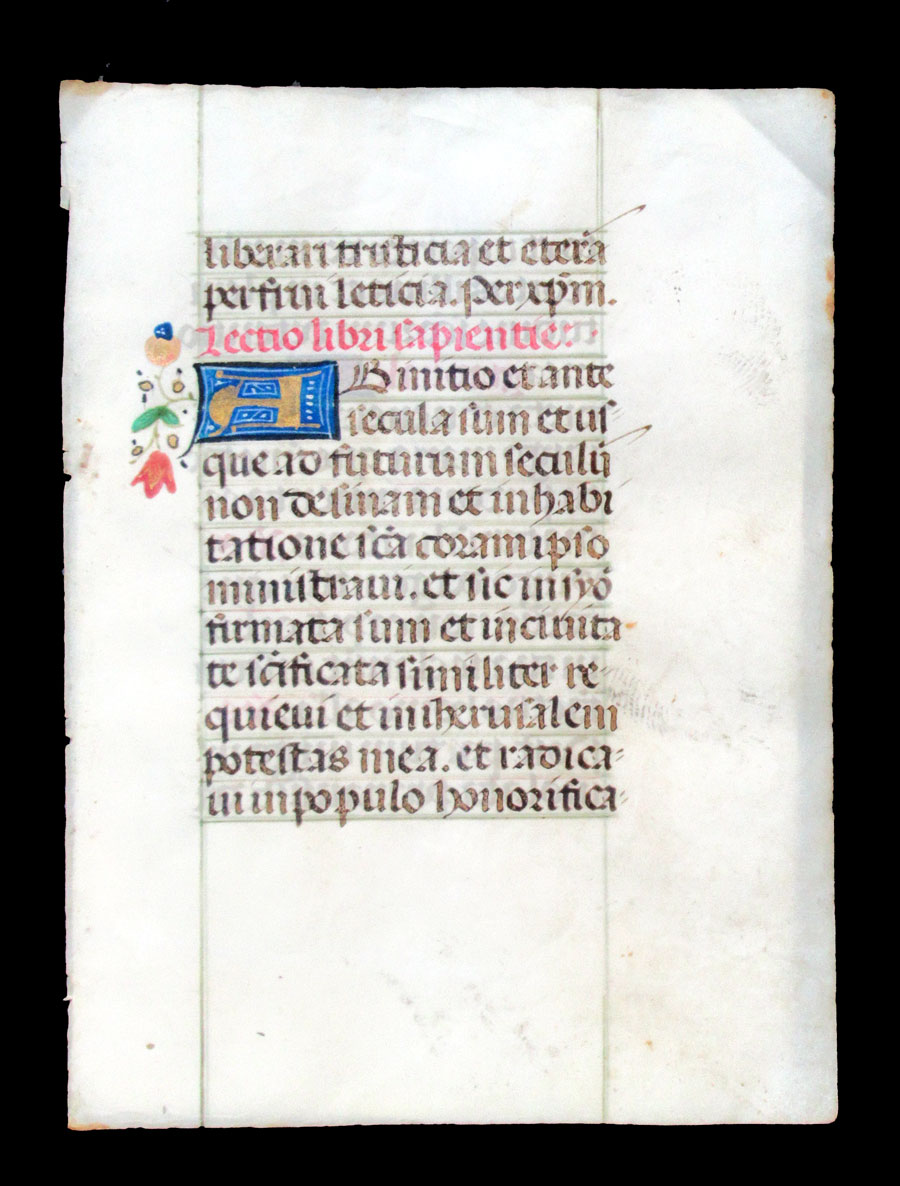 liberari tristicia et eterñа
perfrui leticia. Per xp̄m.
Lectio libri sapientie.
AB initio et ante
secula sum et us-
que ad futurum seculū
non desinam et in habi
tatione scā coram ipso
ministraui. et sic in syō
firmata sum et in ciuita
te scīficata similiter re-
quieui et in iherusalem
potestas mea. et radica-
ui in populo honorifica-